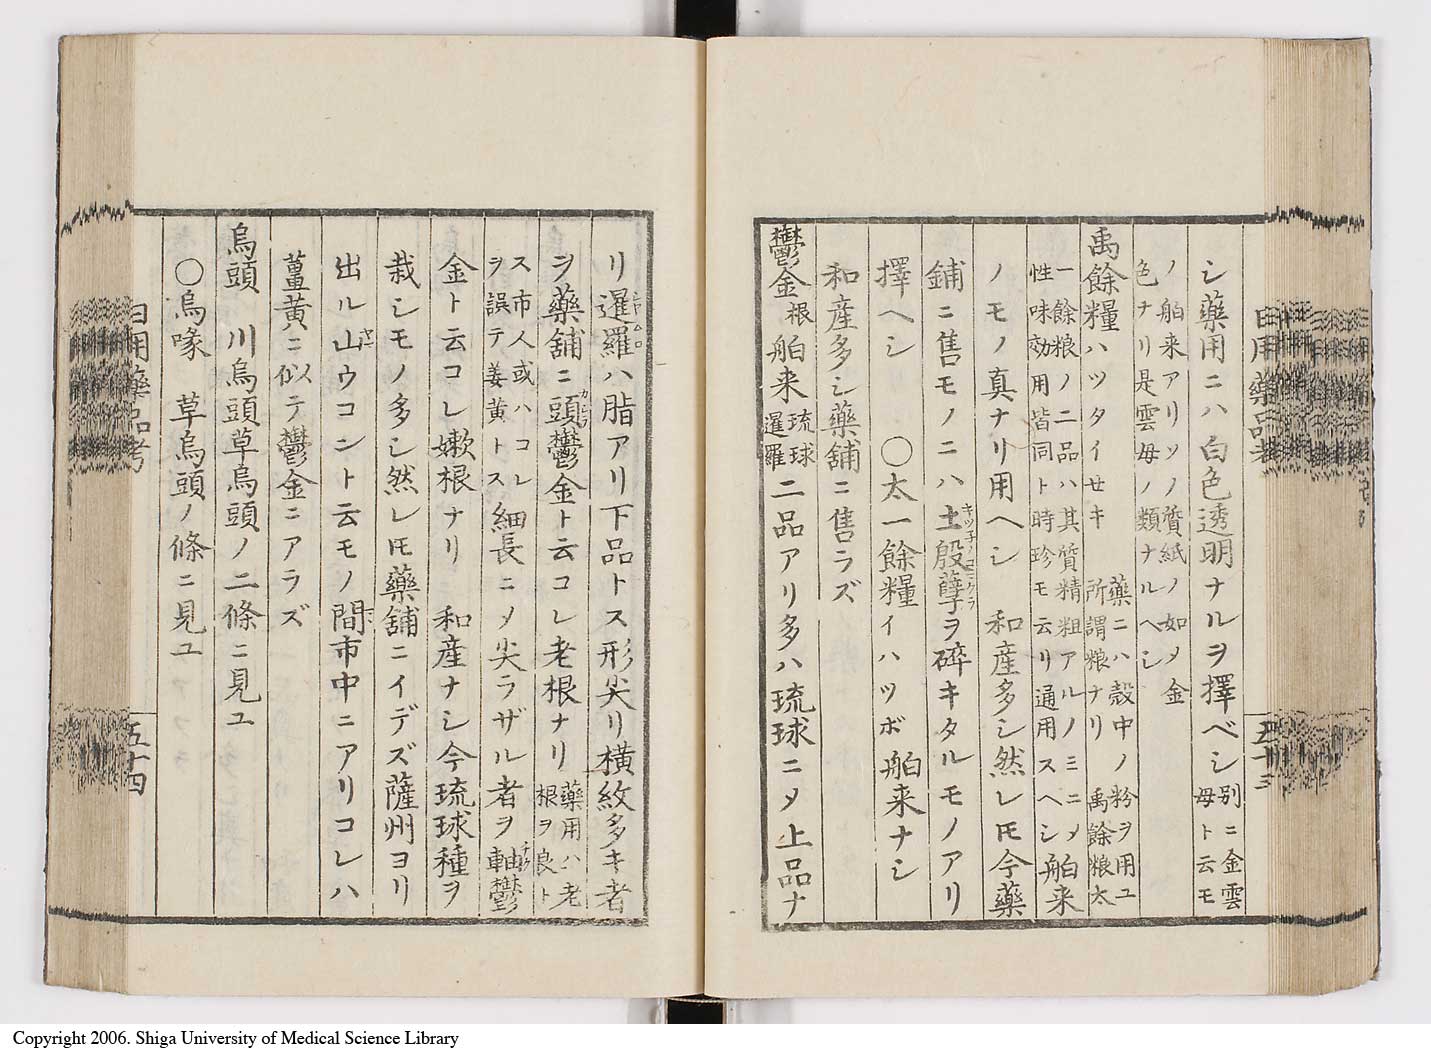 シ藥用ニハ白色透明ナルヲ擇ベシ別ニ金雲
母ト云モ
ノ舶来アリソノ質紙ノ如メ金
色ナリ是雲母ノ類ナルヘシ
禹餘糧ハツタイせキ藥ニハ殼中ノ粉ヲ用ユ
所謂粮ナリ禹餘粮太
一餘粮ノ二品ハ其質精粗アルノミニメ
性味効用皆同ト時珍モ云リ通用スヘシ舶来
ノモノ真ナリ用ヘシ 和産多シ然レ𪜈今藥
鋪ニ售モノニハ土殷孽ヲ碎キタルモノアリ
擇ヘシ ○太一餘糧イハツボ舶来ナシ
和産多シ藥舖ニ售ラズ
鬱金根舶来琉球
暹羅二品アリ多ハ琉球ニメ上品ナ
リ暹羅ハ脂アリ下品トス形尖リ横紋多キ者
ヲ藥舖ニ頭鬱金ト云コレ老根ナリ藥用ハ老
根ヲ良ト
ス市人或ハコレ
ヲ誤テ姜黄トス細長ニメ尖ラザル者ヲ軸鬱
金ト云コレ嫩根ナリ 和産ナシ今琉球種ヲ
栽シモノ多シ然レ𪜈藥舖ニイデズ薩州ヨリ
出ル山ウコント云モノ間市中ニアリコレハ
薑黄ニ似テ鬱金ニアラズ
烏頭 川烏頭草烏頭ノ二條ニ見ユ
○烏喙 草烏頭ノ條ニ見ユ
日用藥品考
五十四
Copyright 2006. Shiga University of Medical Science Library